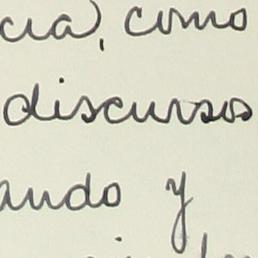 cia, como
discursos
ando y